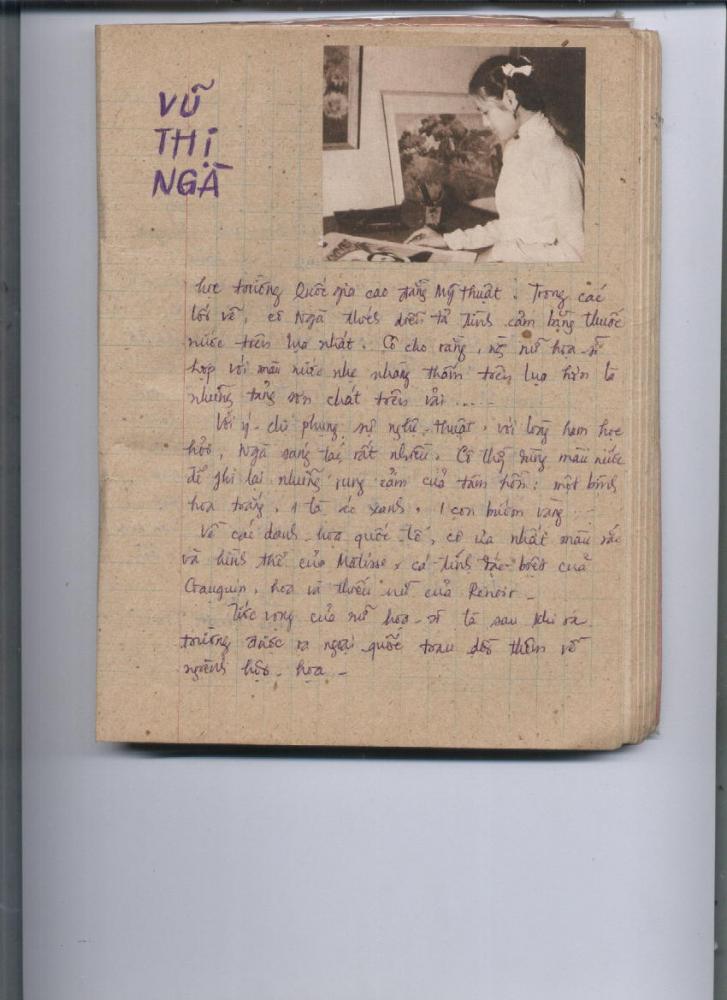 VŨ
THỊ
NGÀ
học trường Quốc gia cao đẳng Mỹ thuật. Trong các
lối vẽ, cô Ngà thích diễn tả tình cảm bằng thuốc
nước trên lụa nhất. Cô cho rằng, nữ họa-sĩ
hợp với màu nước nhẹ nhàng thấm trên lụa hơn là
những tảng sơn chát trên vải ....-
Với ý-chí phụng sự nghệ-thuật, với lòng ham học
hỏi, Ngà sáng tác rất nhiều. Cô thg dùng màu nước
để ghi lại những rung cảm của tâm hồn: một bình
hoa trắng, 1 tà áo xanh, 1 con bướm vàng...-
Về các danh-họa quốc-tế, cô ưa nhất màu sắc
và hình thể của Matisse, cá tính đặc-biệt của
Gauguin, hoa và thiếu nữ của Renoir -
Ước vọng của nữ họa-sĩ là sau khi ra
trường được ra ngoại quốc trau dồi thêm về
ngành hội-họa -